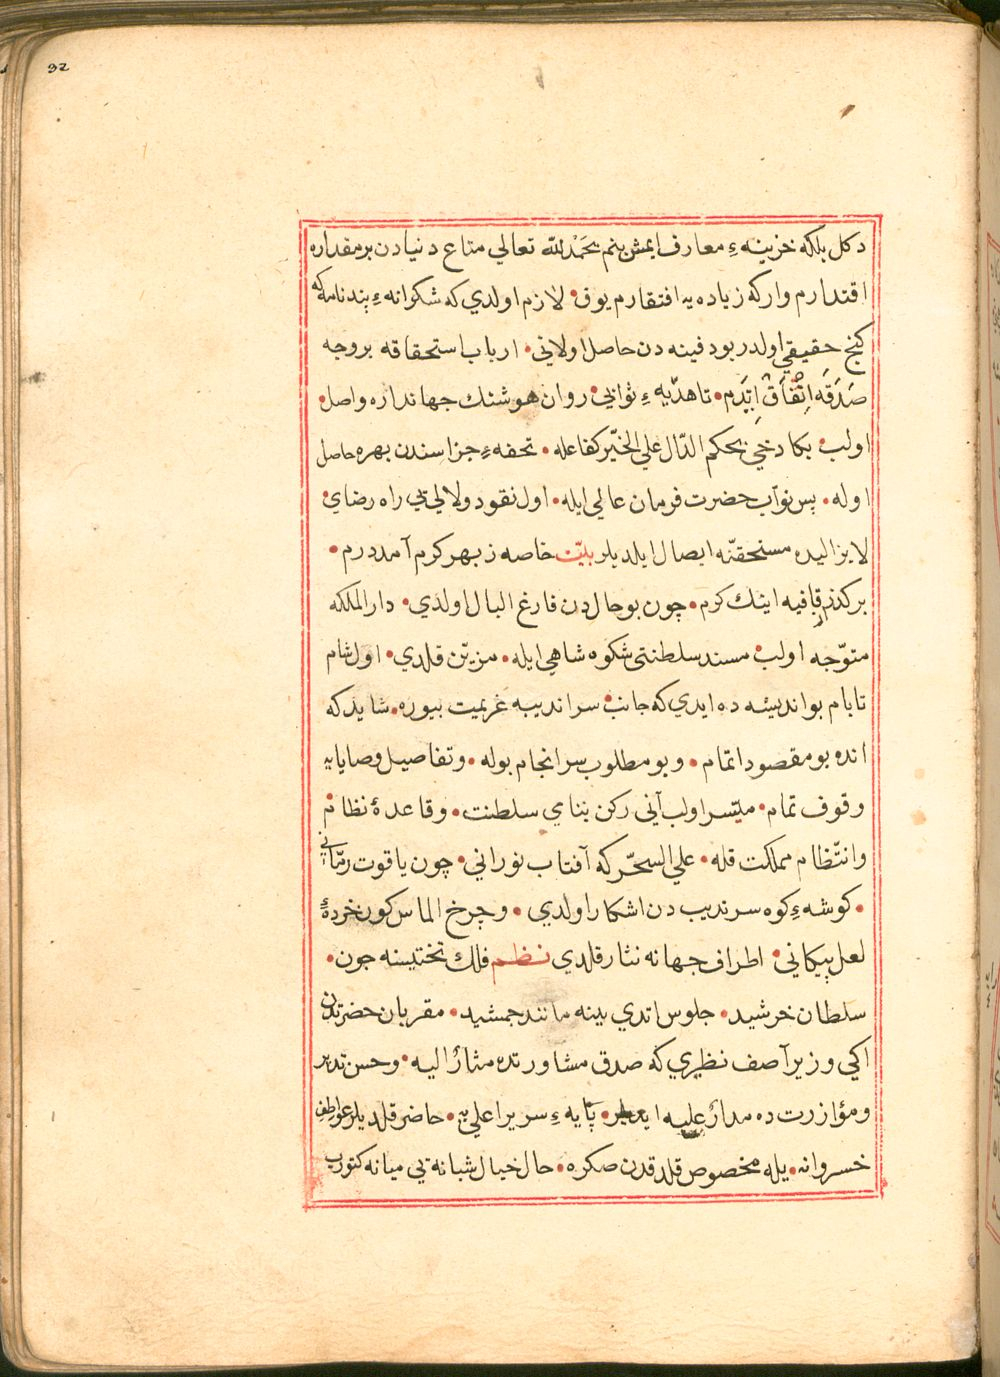 32
دكل بلكه خزينهٔ معارف ايمش بنم بحمد لله تعالي متاع دنيادن بر مقداره
اقتدارم واركه زياده يه افتقارم يوق • لازم اولدي كه شكرانهٔ پندنامه كه
كنج حقيقي اولدر بو دفينه دن حاصل اولاني • ارباب استحقاقه بر وجه
صَدَقَه اِتْفَاقْ اِيَدَم • تا هديهٔ ثوابي • روان هوشنك جهانداره واصل •
اولب • بكا دخي بحكم الدّال علي الخيّر كفاعله • تحفهٔ جزاسندن بهره حاصل
اوله • پس نوّاب حضرت فرمان عالي ايله • اول نقود ولالي يي راه رضاي •
لايزاليده مستحقنه ايصال ايلديلر بيت خاصه ز بهر كرم آمد درم •
بركذر قافيه اينك كرم • چون بو حال دن فارغ البال اولدي • دار الملكه
متوّجه اولب • مسند سلطنتي شكوه شاهي ايله • مزيّن قلدي • اول شام
تا بام بو انديشه ده ايدي كه جانب سرانديبه عزيمت بيوره • شايد كه
انده بو مقصود اتمام • و بو مطلوب سرانجام بوله • و تفاصيل وصايايه
وقوف تمام • ميّسر اولب آني ركن بناي سلطنت • و قاعدهٔ نظام
و انتّظام مملكت قله • علي السحّر كه آفتاب نوراني • چون ياقوت رمّاني
• كوشهٔ كوه سرنديب دن اشكار اولدي • و چرخ الماس كون خردهٔ
لعل پيكاني • اطراف جهانه نثار قلدي نظم فلك تختيسنه چون •
سلطان خرشيد • جلوس اتدي يينه مانند جمشيد • مقربان حضرتدن
اكي وزير آصف نظيري كه صدق مشاورتده مشارٌ اليه • و حسن تدبير
و مؤازرت ده مدارٌ عليه ايديلر • پايهٔ سرير اعلي يه • حاضر قلديلر عواطف
خسروانه • يله مخصوص قلدقدن صكره • حال خيال شبانه يي ميانه كتورب